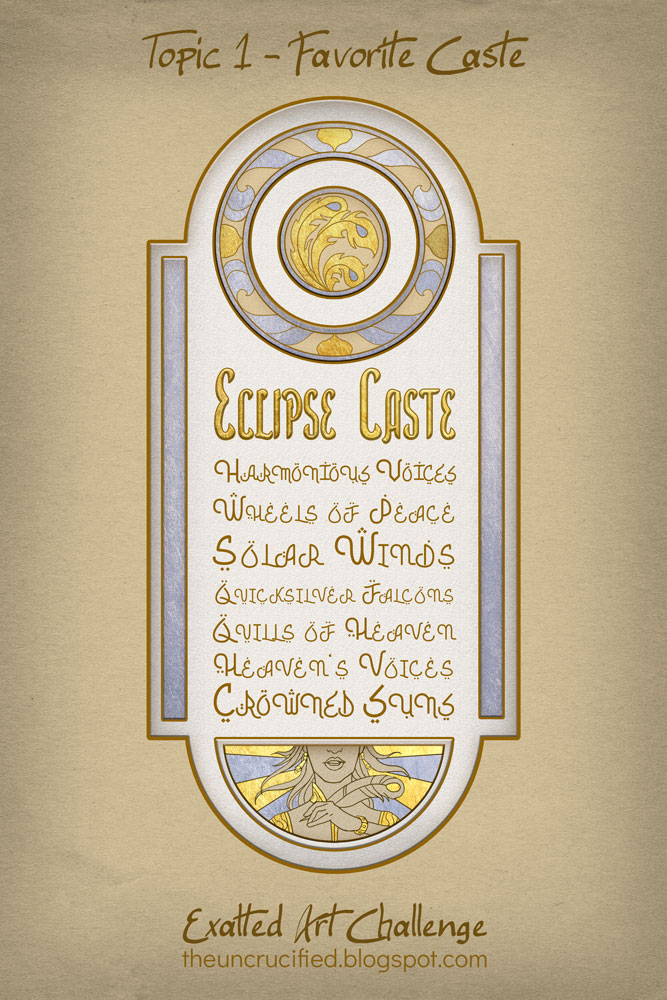 Topic 1 - Favorite Caste
Eclipse Caste
Harmonious Voices
Wheels of Peace
Solar Winds
Quicksilver Falcons
Quills of Heaven
Heaven's Voices
Crowned Suns
Exalted Art Challenge
theuncrucified.blogspot.com